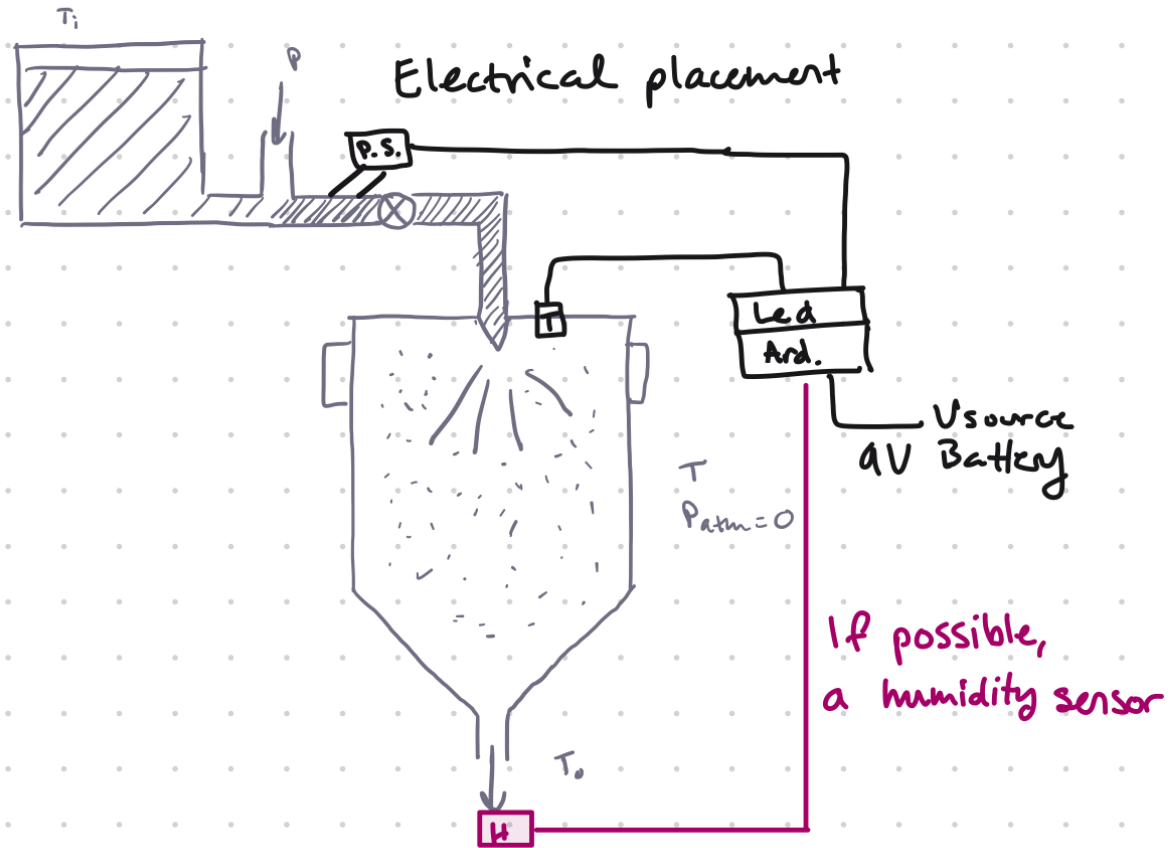 Ti
P
Electrical placement
P.S.
T
Led
Ard.
Vsource
9V Battery
T
Patm = 0
If possible,
a humidity sensor
To
H